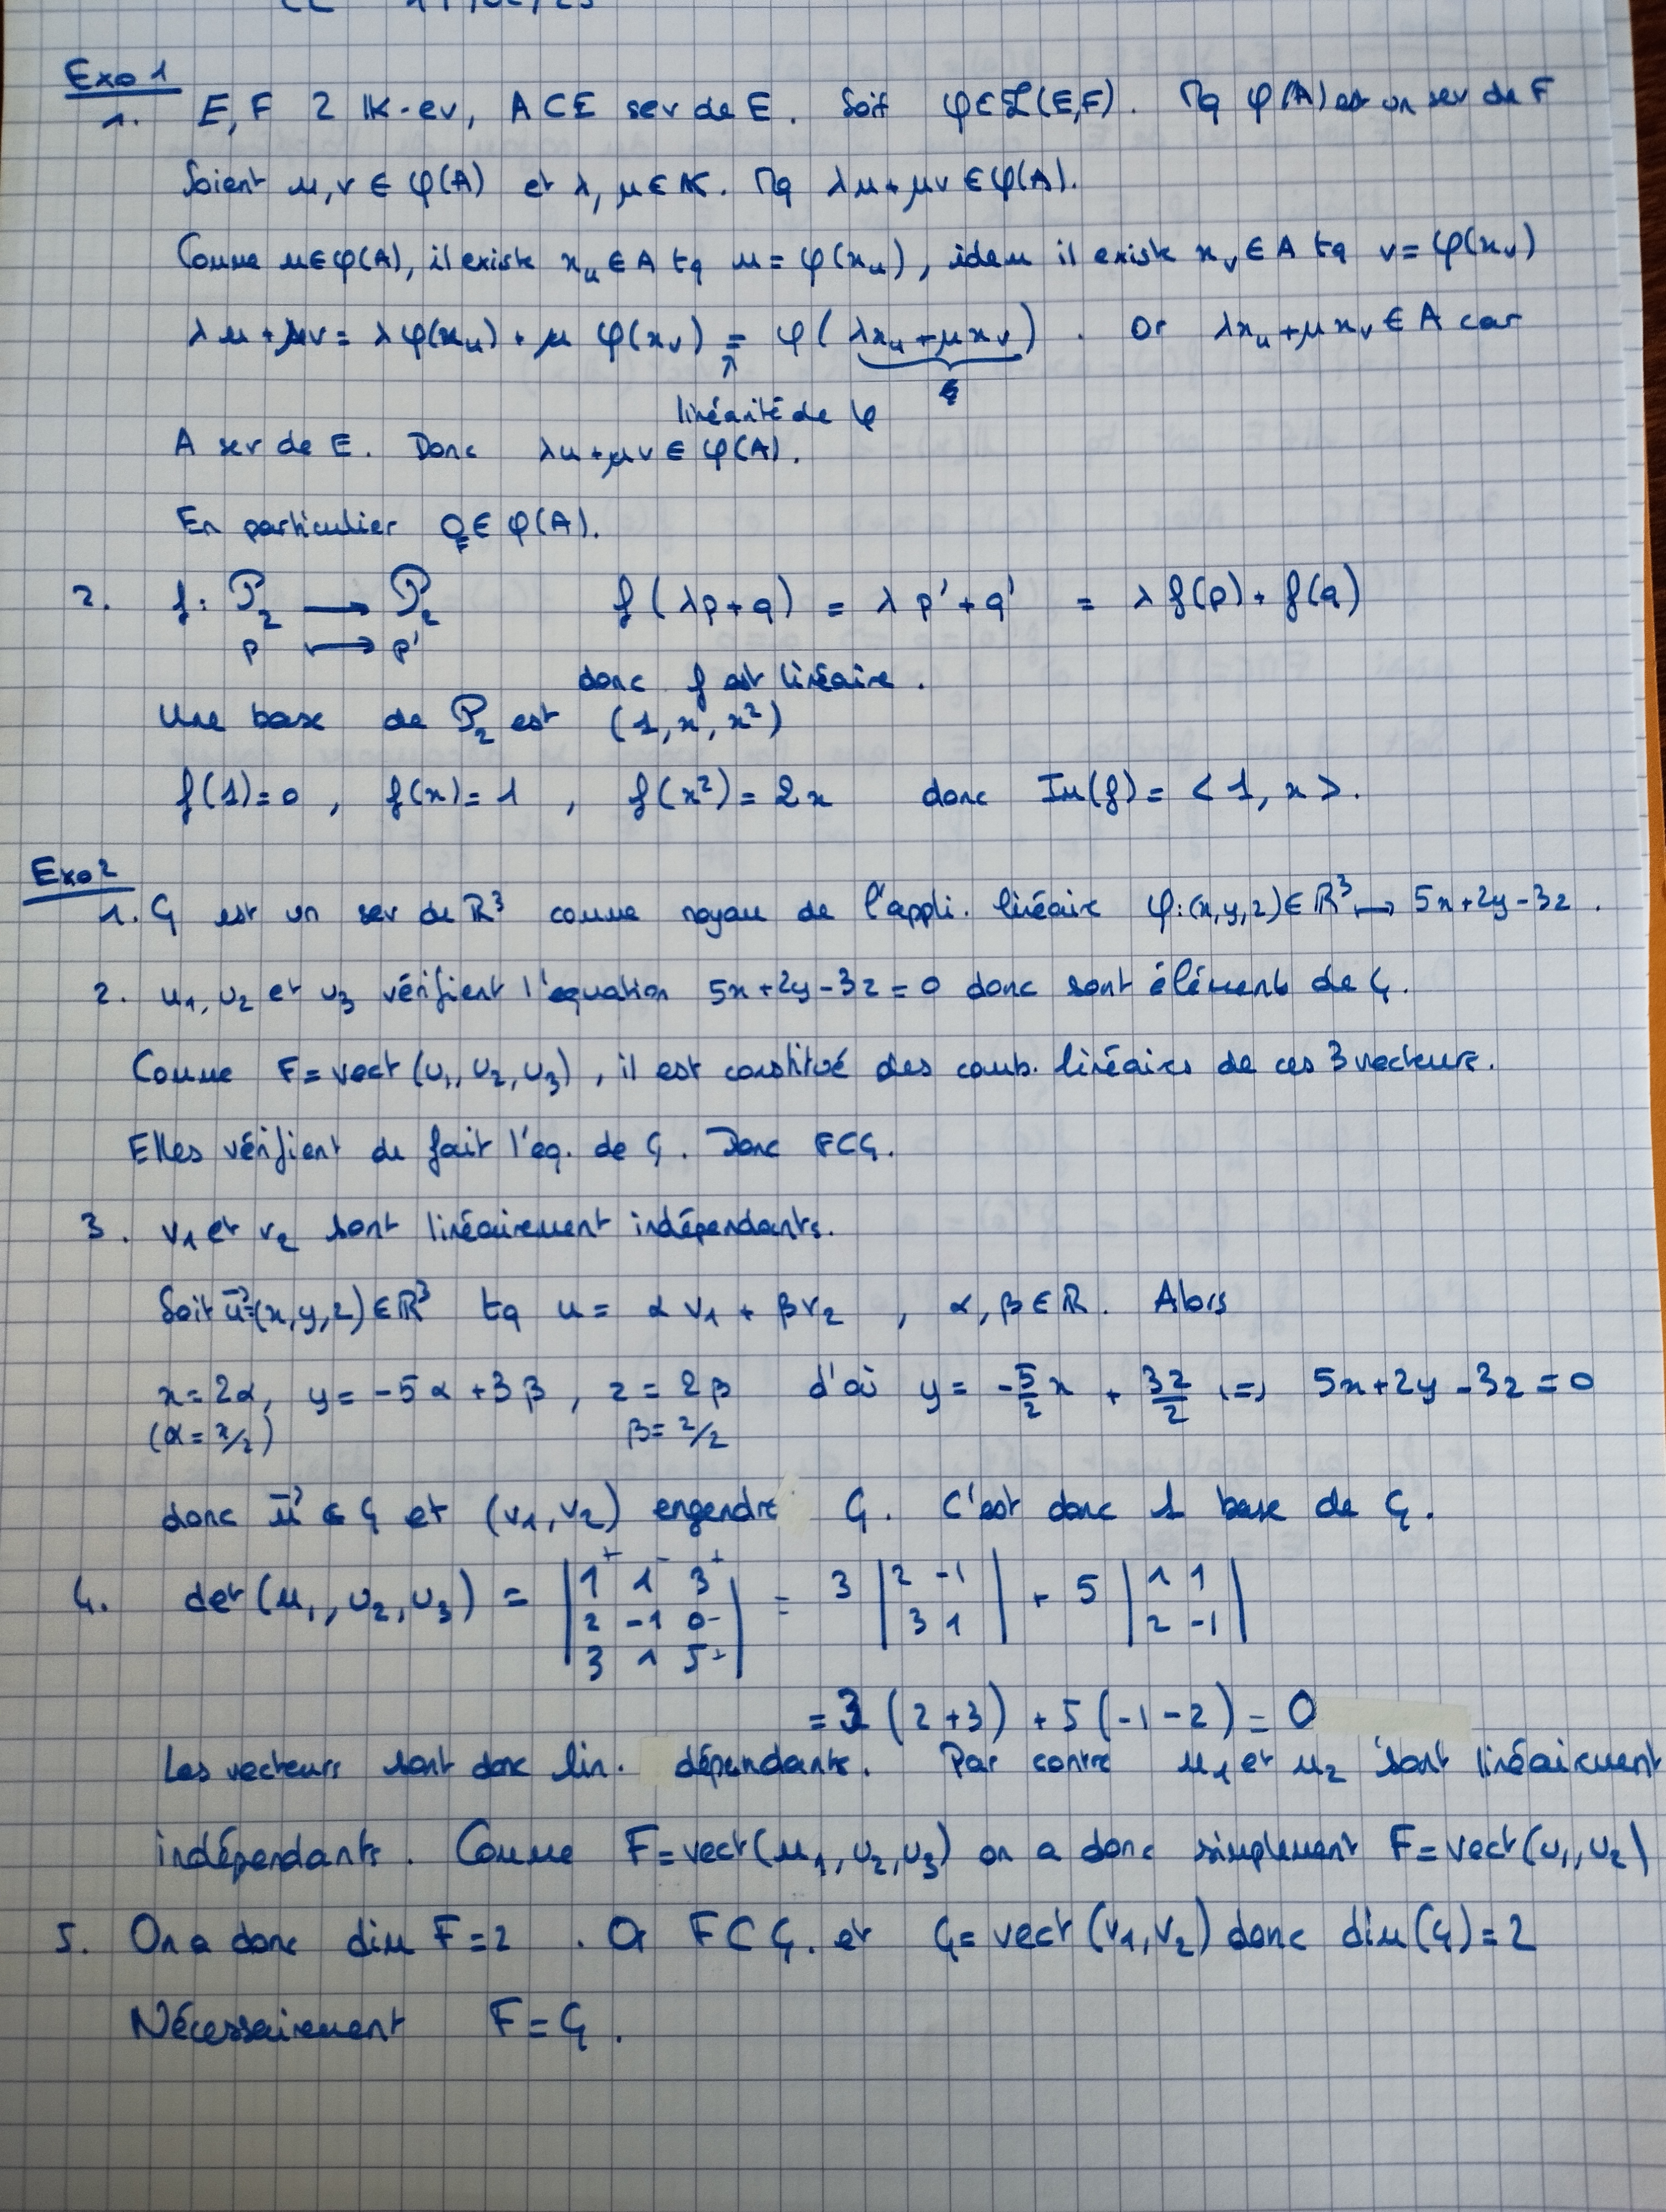 CC 17/02/25
Exo 1
1. E, F 2 K-ev, A ⊂ E sev de E. Soit φ ∈ ℒ(E,F). Mq φ(A) est un sev de F
Soient u, v ∈ φ(A) et λ, μ ∈ K. Mq λu + μv ∈ φ(A).
Comme u ∈ φ(A), il existe x_u ∈ A tq u = φ(x_u), idem il existe x_v ∈ A tq v = φ(x_v)
λu + μv = λφ(x_u) + μ φ(x_v) = φ(λx_u + μx_v). Or λx_u + μx_v ∈ A car
↑
linéarité de φ
A sev de E. Donc λu + μv ∈ φ(A).
En particulier 0_F ∈ φ(A).
2. f : P₂ → P₂ f(λp + q) = λp' + q' = λf(p) + f(q)
p ↦ p'
donc f est linéaire.
Une base de P₂ est (1, x, x²)
f(1) = 0, f(x) = 1, f(x²) = 2x donc Im(f) = <1, x>.
Exo 2
1. G est un sev de ℝ³ comme noyau de l'appli. linéaire φ : (x,y,z) ∈ ℝ³ ↦ 5x + 2y - 3z.
2. u₁, u₂ et u₃ vérifient l'équation 5x + 2y - 3z = 0 donc sont éléments de G.
Comme F = vect(u₁, u₂, u₃), il est constitué des comb. linéaires de ces 3 vecteurs.
Elles vérifient de fait l'eq. de G. Donc F ⊂ G.
3. v₁ et v₂ sont linéairement indépendants.
Soit u⃗ = (x,y,z) ∈ ℝ³ tq u = αv₁ + βv₂, α, β ∈ ℝ. Alors
x = 2α, y = -5α + 3β, z = 2β d'où y = -5/2 x + 3z/2 ⟺ 5x + 2y - 3z = 0
(α = x/2) β = z/2
donc u⃗ ∈ G et (v₁, v₂) engendre G. C'est donc 1 base de G.
4. det(u₁, u₂, u₃) = |1⁺ 1⁻ 3⁺| = 3 |2 -1| + 5 |1 1|
|2 -1 0⁻| |3 1| |2 -1|
|3 1 5⁺|
= 3 (2+3) + 5 (-1-2) = 0
Les vecteurs sont donc lin. dépendants. Par contre u₁ et u₂ sont linéairement
indépendants. Comme F = vect(u₁, u₂, u₃) on a donc simplement F = vect(u₁, u₂)
5. On a donc dim F = 2. Or F ⊂ G. et G = vect(v₁, v₂) donc dim(G) = 2
Nécessairement F = G.